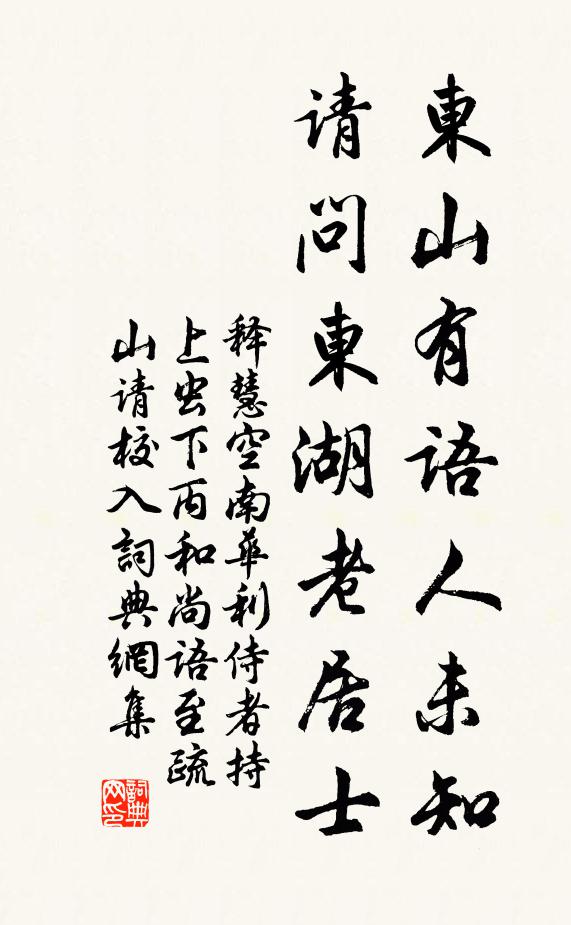 東山有語人未知
请問東湖老居士
释慧空南華利侍者持
上虫下丙和尚語至疏
山请校入詞典網集
詞典网印